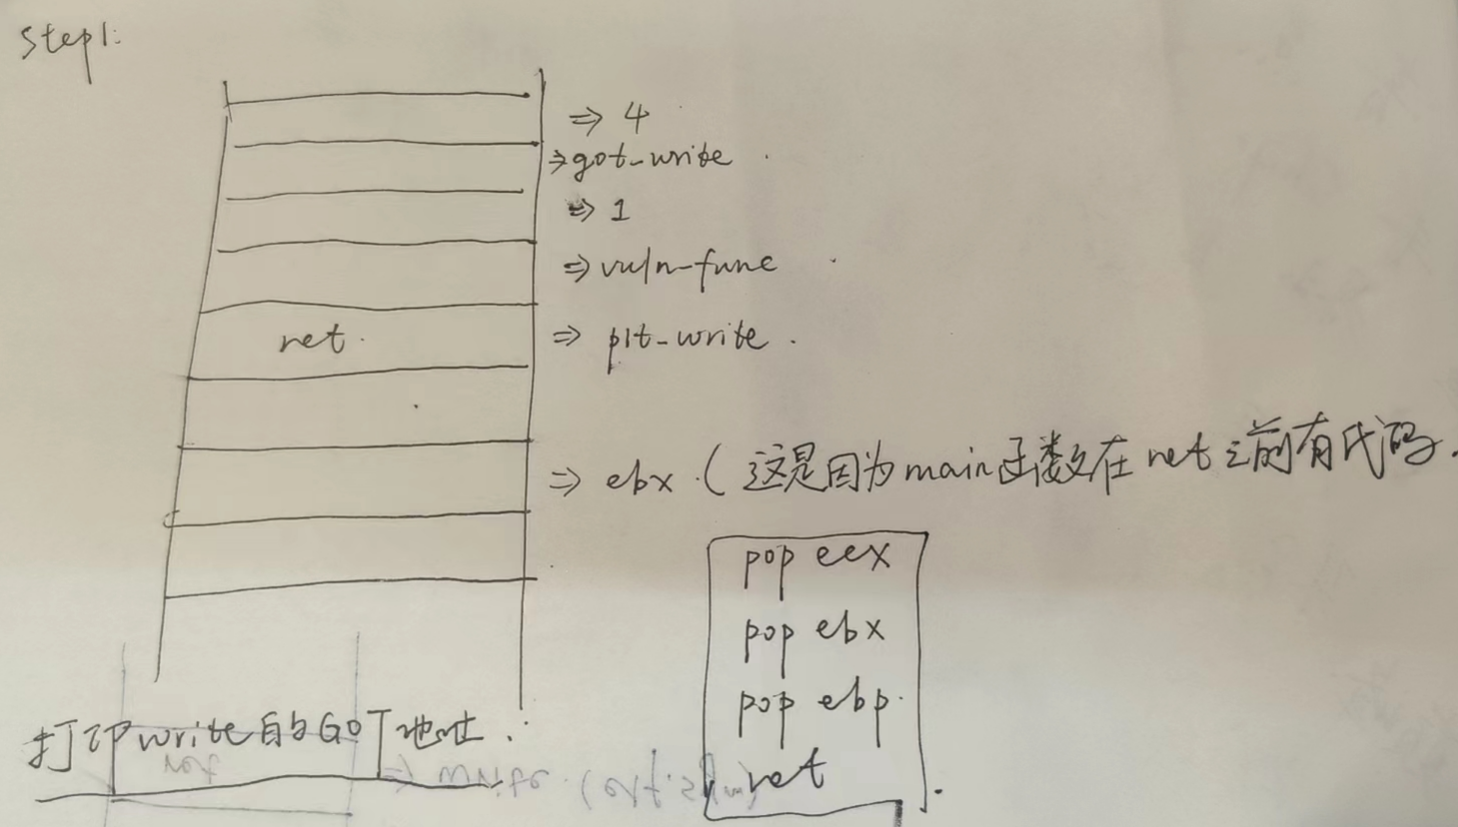 step1:
⇒ 4
⇒ got-write
⇒ 1
⇒ vuln-func
ret. ⇒ plt-write.
⇒ ebx.(这是因为main函数在ret之前有代码.
pop eex
pop ebx
pop ebp.
ret
打印write的GOT地址.